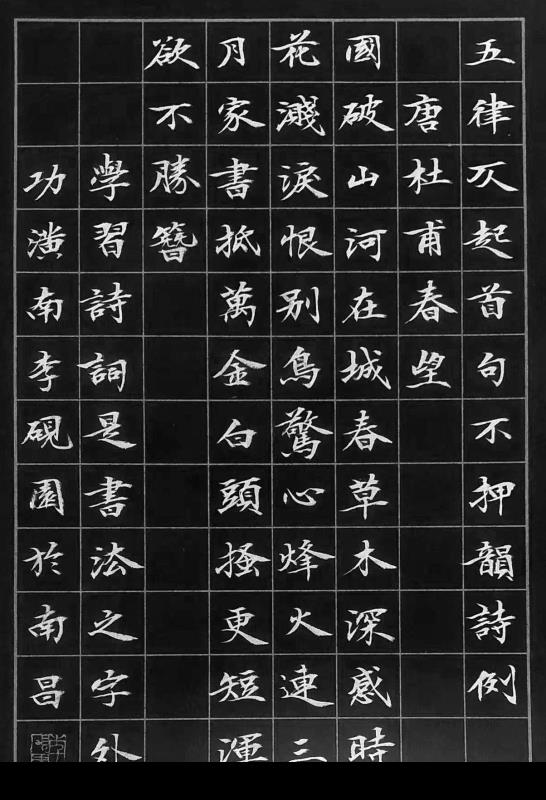 五律仄起首句不押韻詩例
唐杜甫春望
國破山河在城春草木深感時
花濺淚恨別鳥驚心烽火連三
月家書抵萬金白頭搔更短渾
欲不勝簪
學習詩詞是書法之字外
功潢南李硯園於南昌